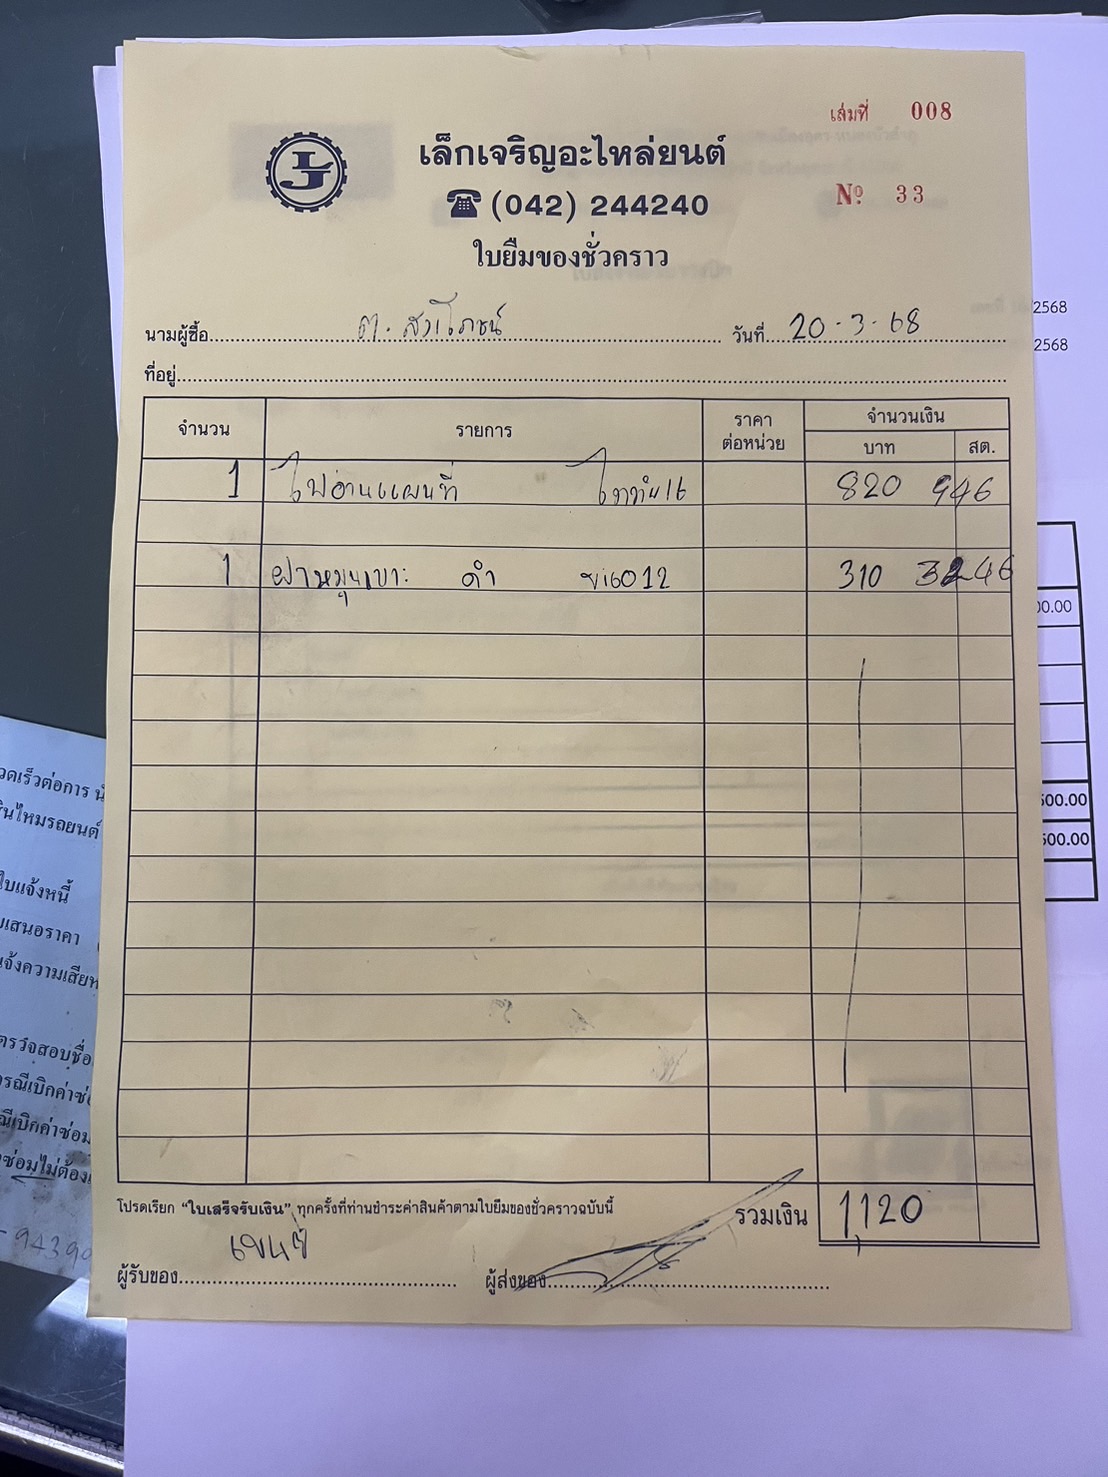 เล่มที่ 008
เล็กเจริญอะไหล่ยนต์
(042) 244240
Nº 33
ใบยืมของชั่วคราว
นามผู้ซื้อ ต. สวิโภชน์ วันที่ 20-3-68
ที่อยู่
จำนวน รายการ ราคาต่อหน่วย จำนวนเงิน
บาท สต.
1 ไฟอ่านแผนที่ 820 946
1 ฝาหมุนเบาะ ดำ วีโก้12 310 46
โปรดเรียก "ใบเสร็จรับเงิน" ทุกครั้งที่ท่านชำระค่าสินค้าตามใบยืมของชั่วคราวฉบับนี้
รวมเงิน 1120
ผู้รับของ
ผู้ส่งของ
2568
2568
00.00
500.00
500.00
วดเร็วต่อการ
สินไหมรถยนต์
ใบแจ้งหนี้
บเสนอราคา
แจ้งความเสียห
ตรวจสอบชื่อ
กรณีเบิกค่าซ่อ
ณีเบิกค่าซ่อม
ซ่อมไม่ต้อง